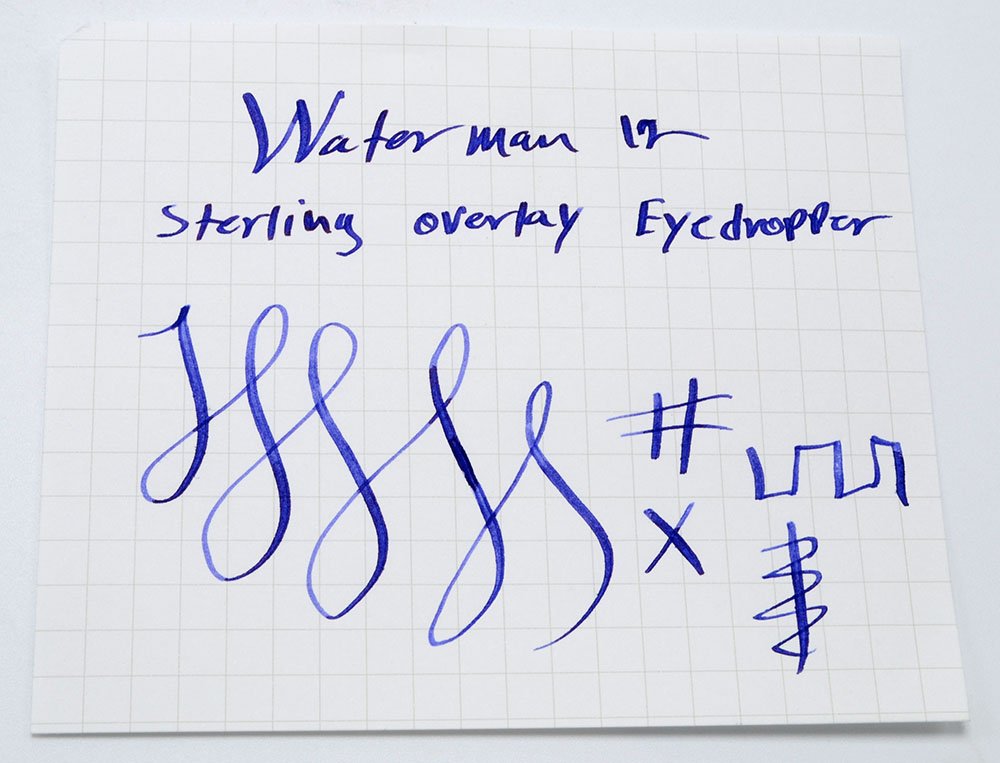 Waterman 12
Sterling overlay Eyedropper